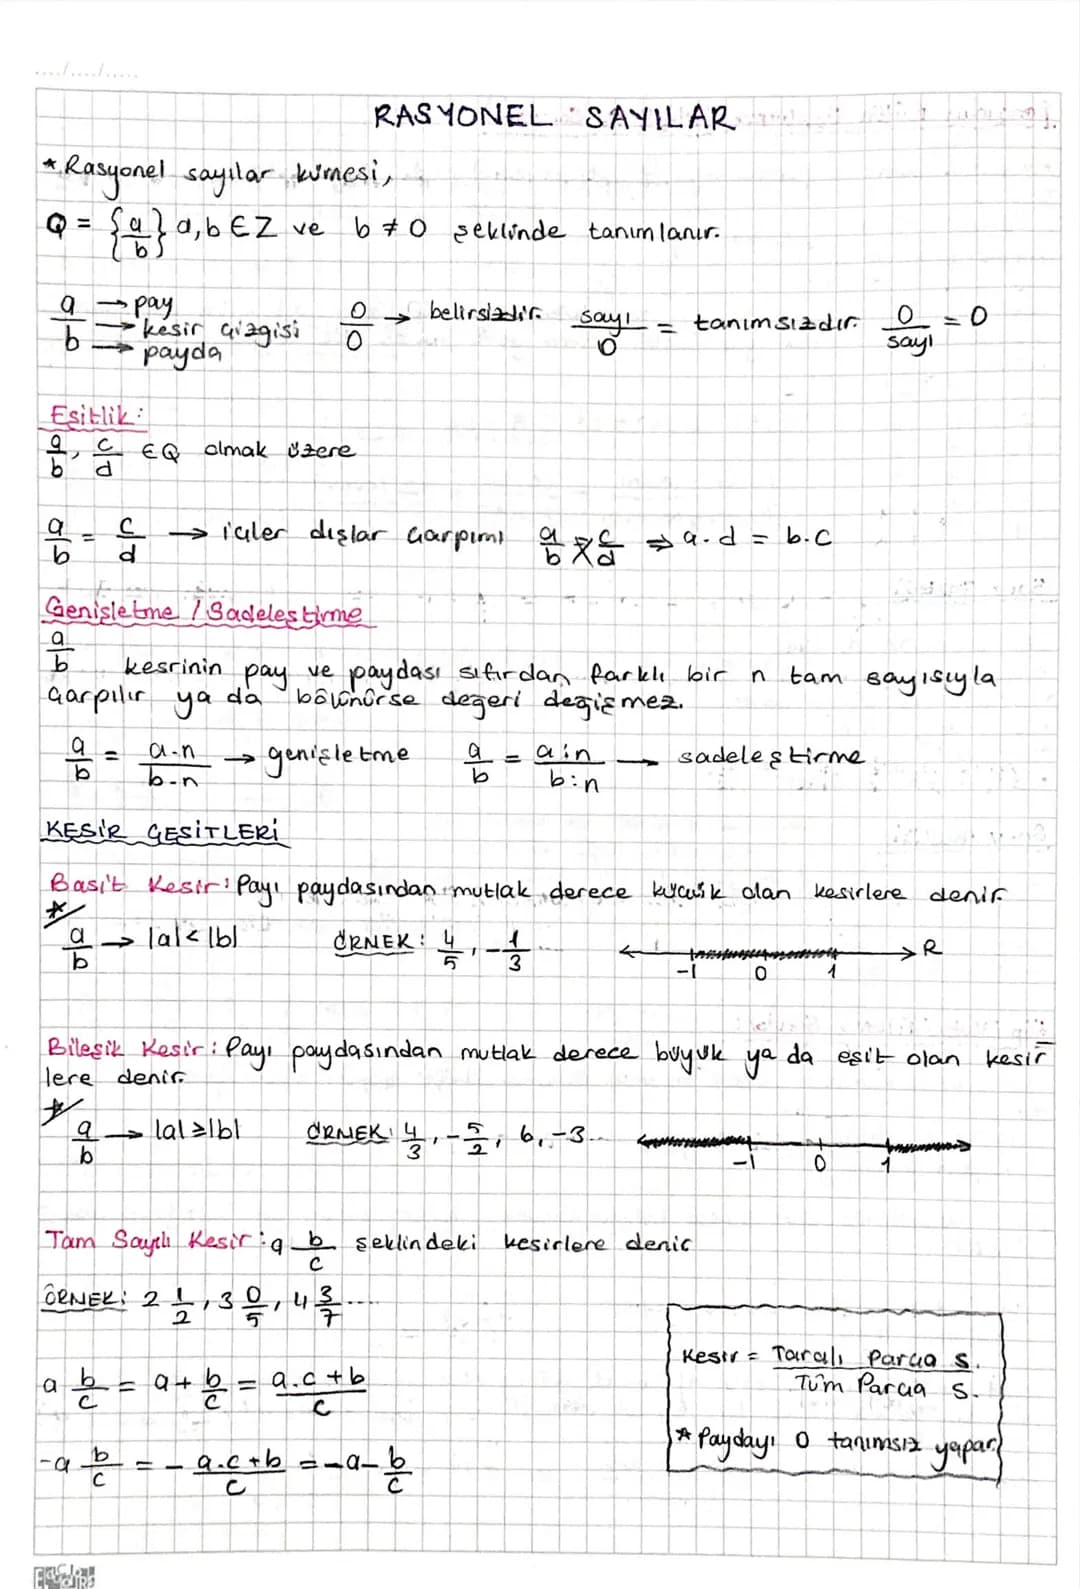 RASYONEL SAYILAR
* Rasyonel sayılar kümesi,
Q = {a/b} a,b ∈ Z ve b ≠ 0 şeklinde tanımlanır.
a/b → pay → kesir çizgisi → payda 0/0 → belirsizdir. sayı/0 = tanımsızdır. 0/sayı = 0
Eşitlik:
a/b, c/d ∈ Q olmak üzere
a/b = c/d → içler dışlar çarpımı a/b × c/d ⇒ a.d = b.c
Genişletme / Sadeleştirme
a/b kesrinin pay ve paydası sıfırdan farklı bir n tam sayısıyla
çarpılır ya da bölünürse değeri değişmez.
a/b = a.n/b.n → genişletme a/b = a:n/b:n → sadeleştirme
KESİR ÇEŞİTLERİ
Basit Kesir: Payı paydasından mutlak derece küçük olan kesirlere denir.
* a/b → |a| < |b| ÖRNEK: 4/5, -1/3 ... -1 0 1 R
Bileşik Kesir: Payı paydasından mutlak derece büyük ya da eşit olan kesir
lere denir.
* a/b → |a| ≥ |b| ÖRNEK: 4/3, -5/2, 6, -3... -1 0 1
Tam Sayılı Kesir: a b/c şeklindeki kesirlere denir
ÖRNEK: 2 1/2, 3 0/5, 4 3/7 ....
a b/c = a + b/c = a.c+b/c
-a b/c = - a.c+b/c = -a - b/c
Kesir = Taralı Parça s. / Tüm Parça s.
* Paydayı 0 tanımsız yapar